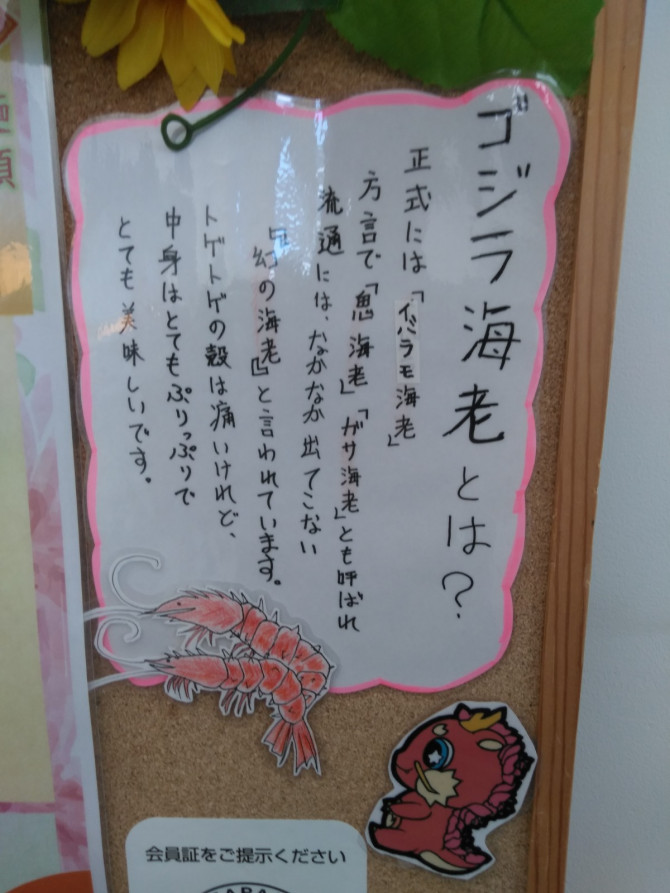 ゴジラ海老とは？
正式には「イバラモ海老」
方言で「鬼海老」「ガサ海老」とも呼ばれ
流通には、なかなか出てこない
『幻の海老』と言われています。
トゲトゲの殻は痛いけれど、
中身はとてもぷりっぷりで
とても美味しいです。
会員証をご提示ください